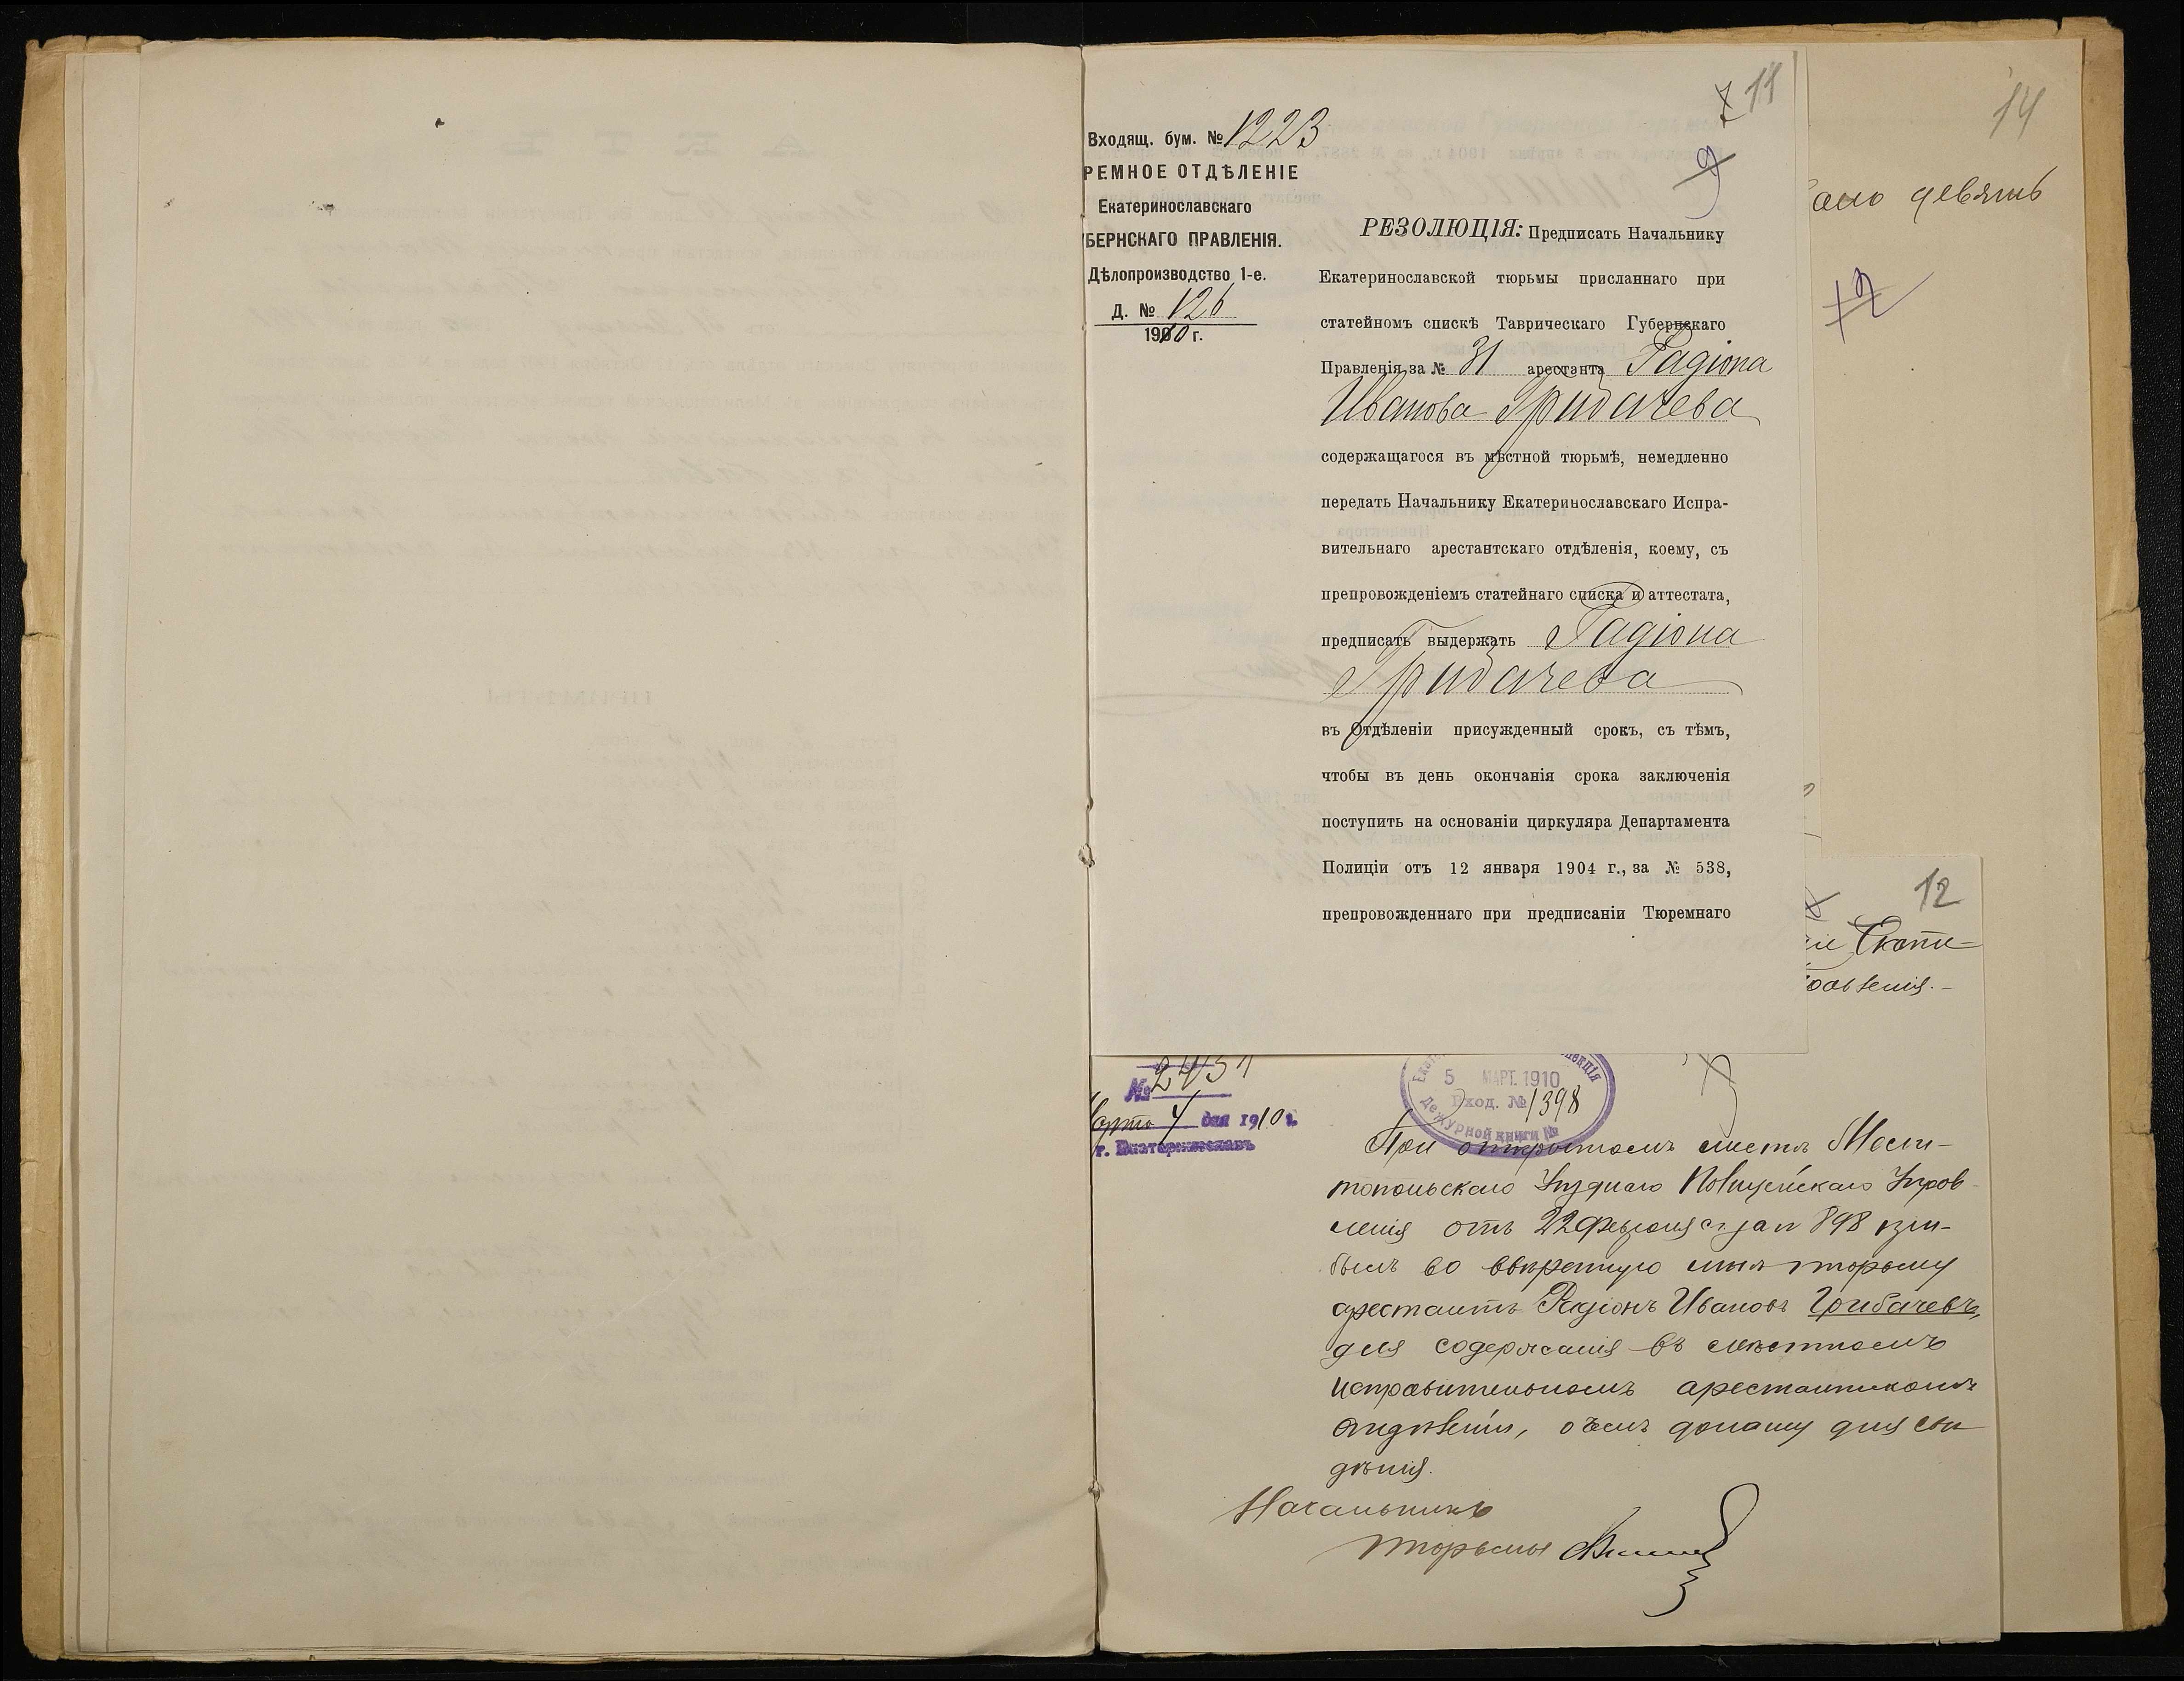 11
7
9
Входящ. бум. № 1223
РЕМНОЕ ОТДѢЛЕНІЕ
Екатеринославскаго
БЕРНСКАГО ПРАВЛЕНІЯ.
Дѣлопроизводство 1-е.
Д. № 126
1910 г.
РЕЗОЛЮЦІЯ: Предписать Начальнику
Екатеринославской тюрьмы присланнаго при
статейномъ спискѣ Таврическаго Губернскаго
Правленія за № 31 арестанта Радіона
Иванова Грибачева
содержащагося въ мѣстной тюрьмѣ, немедленно
передать Начальнику Екатеринославскаго Испра-
вительнаго арестантскаго отдѣленія, коему, съ
препровожденіемъ статейнаго списка и аттестата,
предписать выдержать Радіона
Грибачева
въ Отдѣленіи присужденный срокъ, съ тѣмъ,
чтобы въ день окончанія срока заключенія
поступить на основаніи циркуляра Департамента
Полиціи отъ 12 января 1904 г., за № 538,
препровожденнаго при предписаніи Тюремнаго
14
девять
12
№ 2431
Марта 4 дня 1910 г.
г. Екатеринославъ
5 МАРТ. 1910
Вход. № 1398
Дежурной книги №
При открытомъ листѣ Мели-
топольскаго Уѣзднаго Полицейскаго Управ-
ленія отъ 22 Февраля с.г. за № 898 при-
былъ во ввѣренную мнѣ тюрьму
арестантъ Радіонъ Ивановъ Грибачевъ,
для содержанія въ мѣстномъ
исправительномъ арестантскомъ
отдѣленіи, о чемъ доношу для свѣ
дѣнія.
Начальникъ
тюрьмы